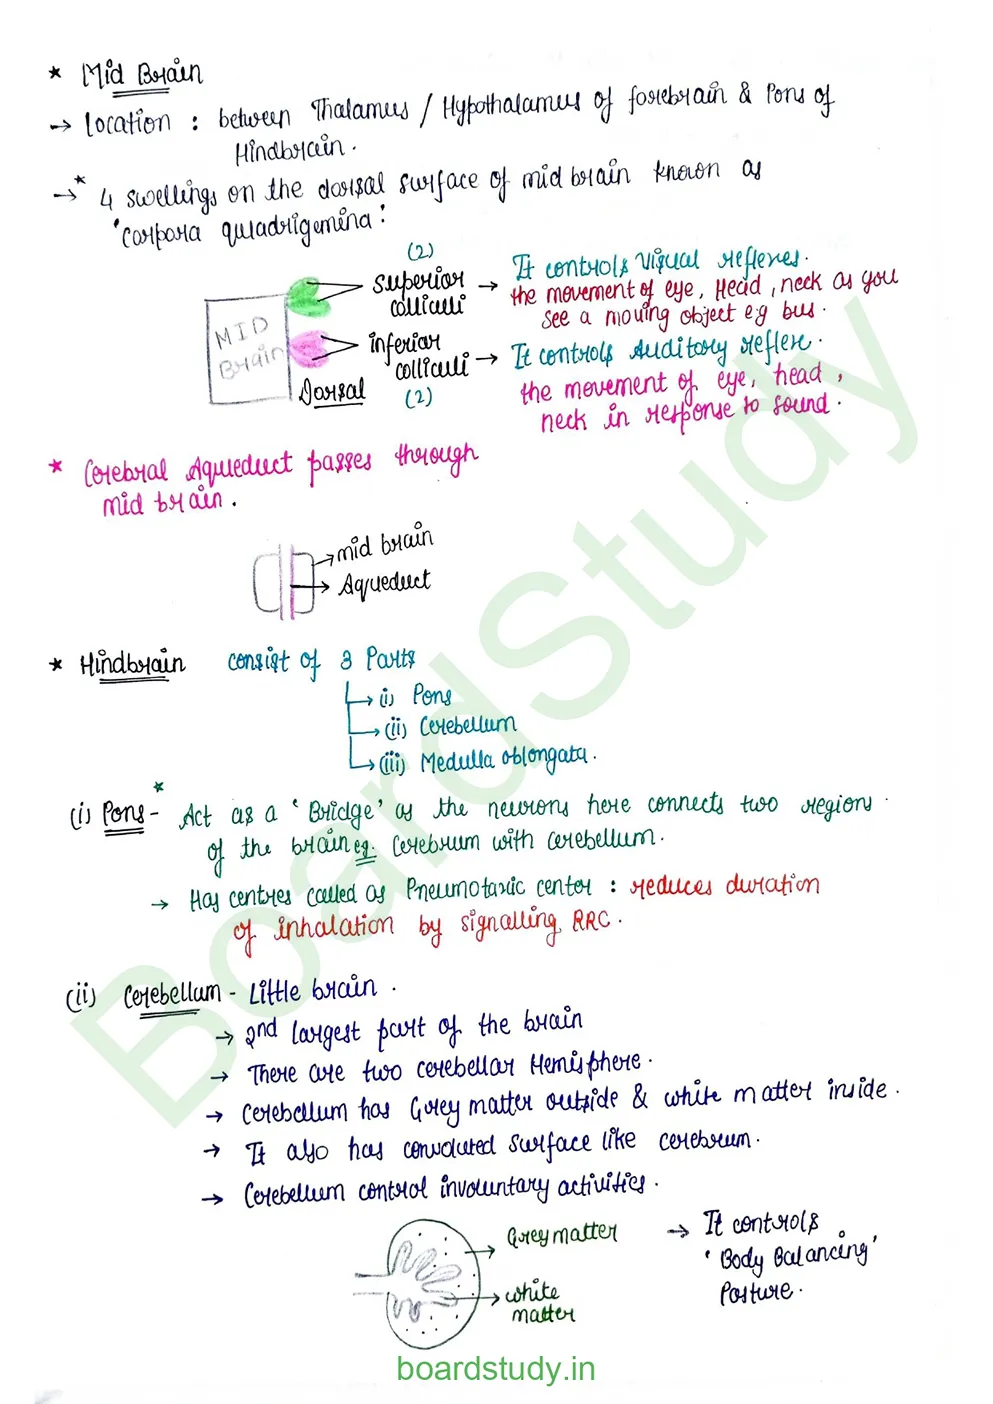 * Mid Brain
→ Location : between Thalamus / Hypothalamus of forebrain & Pons of
Hindbrain.
→* 4 swellings on the dorsal surface of mid brain known as
'Corpora quadrigemina:
(2)
Superior
colliculi
→ It controls Visual reflexes.
the movement of eye, Head, neck as you
see a moving object eg bus.
MID
Brain
inferior
colliculi
(2)
→ It controls Auditory reflex.
the movement of eye, head,
neck in response to sound.
Dorsal
* Cerebral Aqueduct passes through
mid brain.
mid brain
Aqueduct
* Hindbrain consist of 3 Parts
→ (i) Pons
→ (ii) Cerebellum
→ (iii) Medulla oblongata.
(i) Pons -* Act as a 'Bridge' as the neurons here connects two regions.
of the brain eg: Cerebrum with cerebellum.
→ Has centres called as Pneumotaxic center : reduces duration
of inhalation by signalling RRC.
(ii) Cerebellum - Little brain.
→ 2nd largest part of the brain
→ There are two cerebellar Hemisphere.
→ Cerebellum has Grey matter outside & white matter inside.
→ It also has convoluted surface like cerebrum.
→ Cerebellum control involuntary activities.
Grey matter
white
matter
→ It controls
'Body Balancing'
Posture.
BoardStudy
boardstudy.in